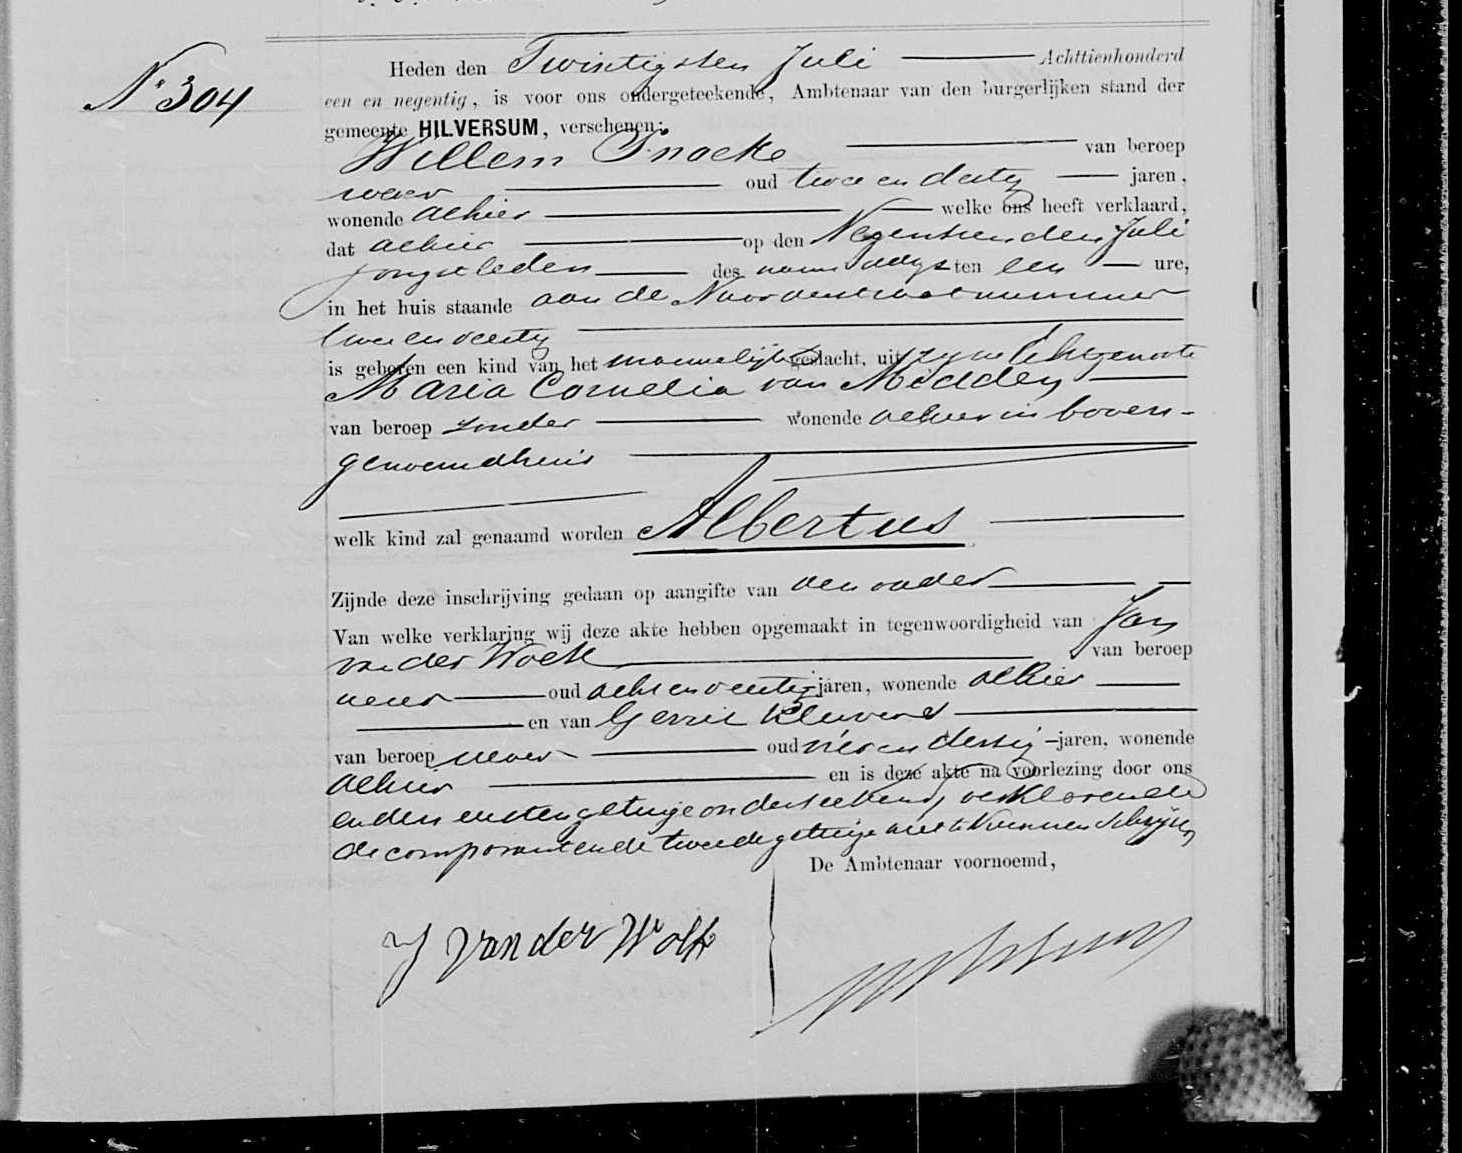 Nº 304
Heden den Twintigsten Juli Achttienhonderd
een en negentig, is voor ons ondergeteekende, Ambtenaar van den burgerlijken stand der
gemeente HILVERSUM, verschenen:
Willem van beroep
wever oud twee en dertig jaren,
wonende alhier welke ons heeft verklaard,
dat alhier op den Negentienden Juli
jongstleden des namiddags ten een ure,
in het huis staande aan de nummer
twee en veertig
is geboren een kind van het mannelijk geslacht, uit zijne Echtgenoote
Maria Cornelia van Midden
van beroep zonder wonende alhier in boven-
genoemd huis
welk kind zal genaamd worden Albertus
Zijnde deze inschrijving gedaan op aangifte van den vader
Van welke verklaring wij deze akte hebben opgemaakt in tegenwoordigheid van Jan
van der Wolk van beroep
wever oud acht en veertig jaren, wonende alhier
en van Gerrit
van beroep wever oud vier en dertig jaren, wonende
alhier en is deze akte na voorlezing door ons
en den eersten getuige onderteekend, verklarende
de comparant en de tweede getuige niet te kunnen schrijven
De Ambtenaar voornoemd,
J van der Wolk